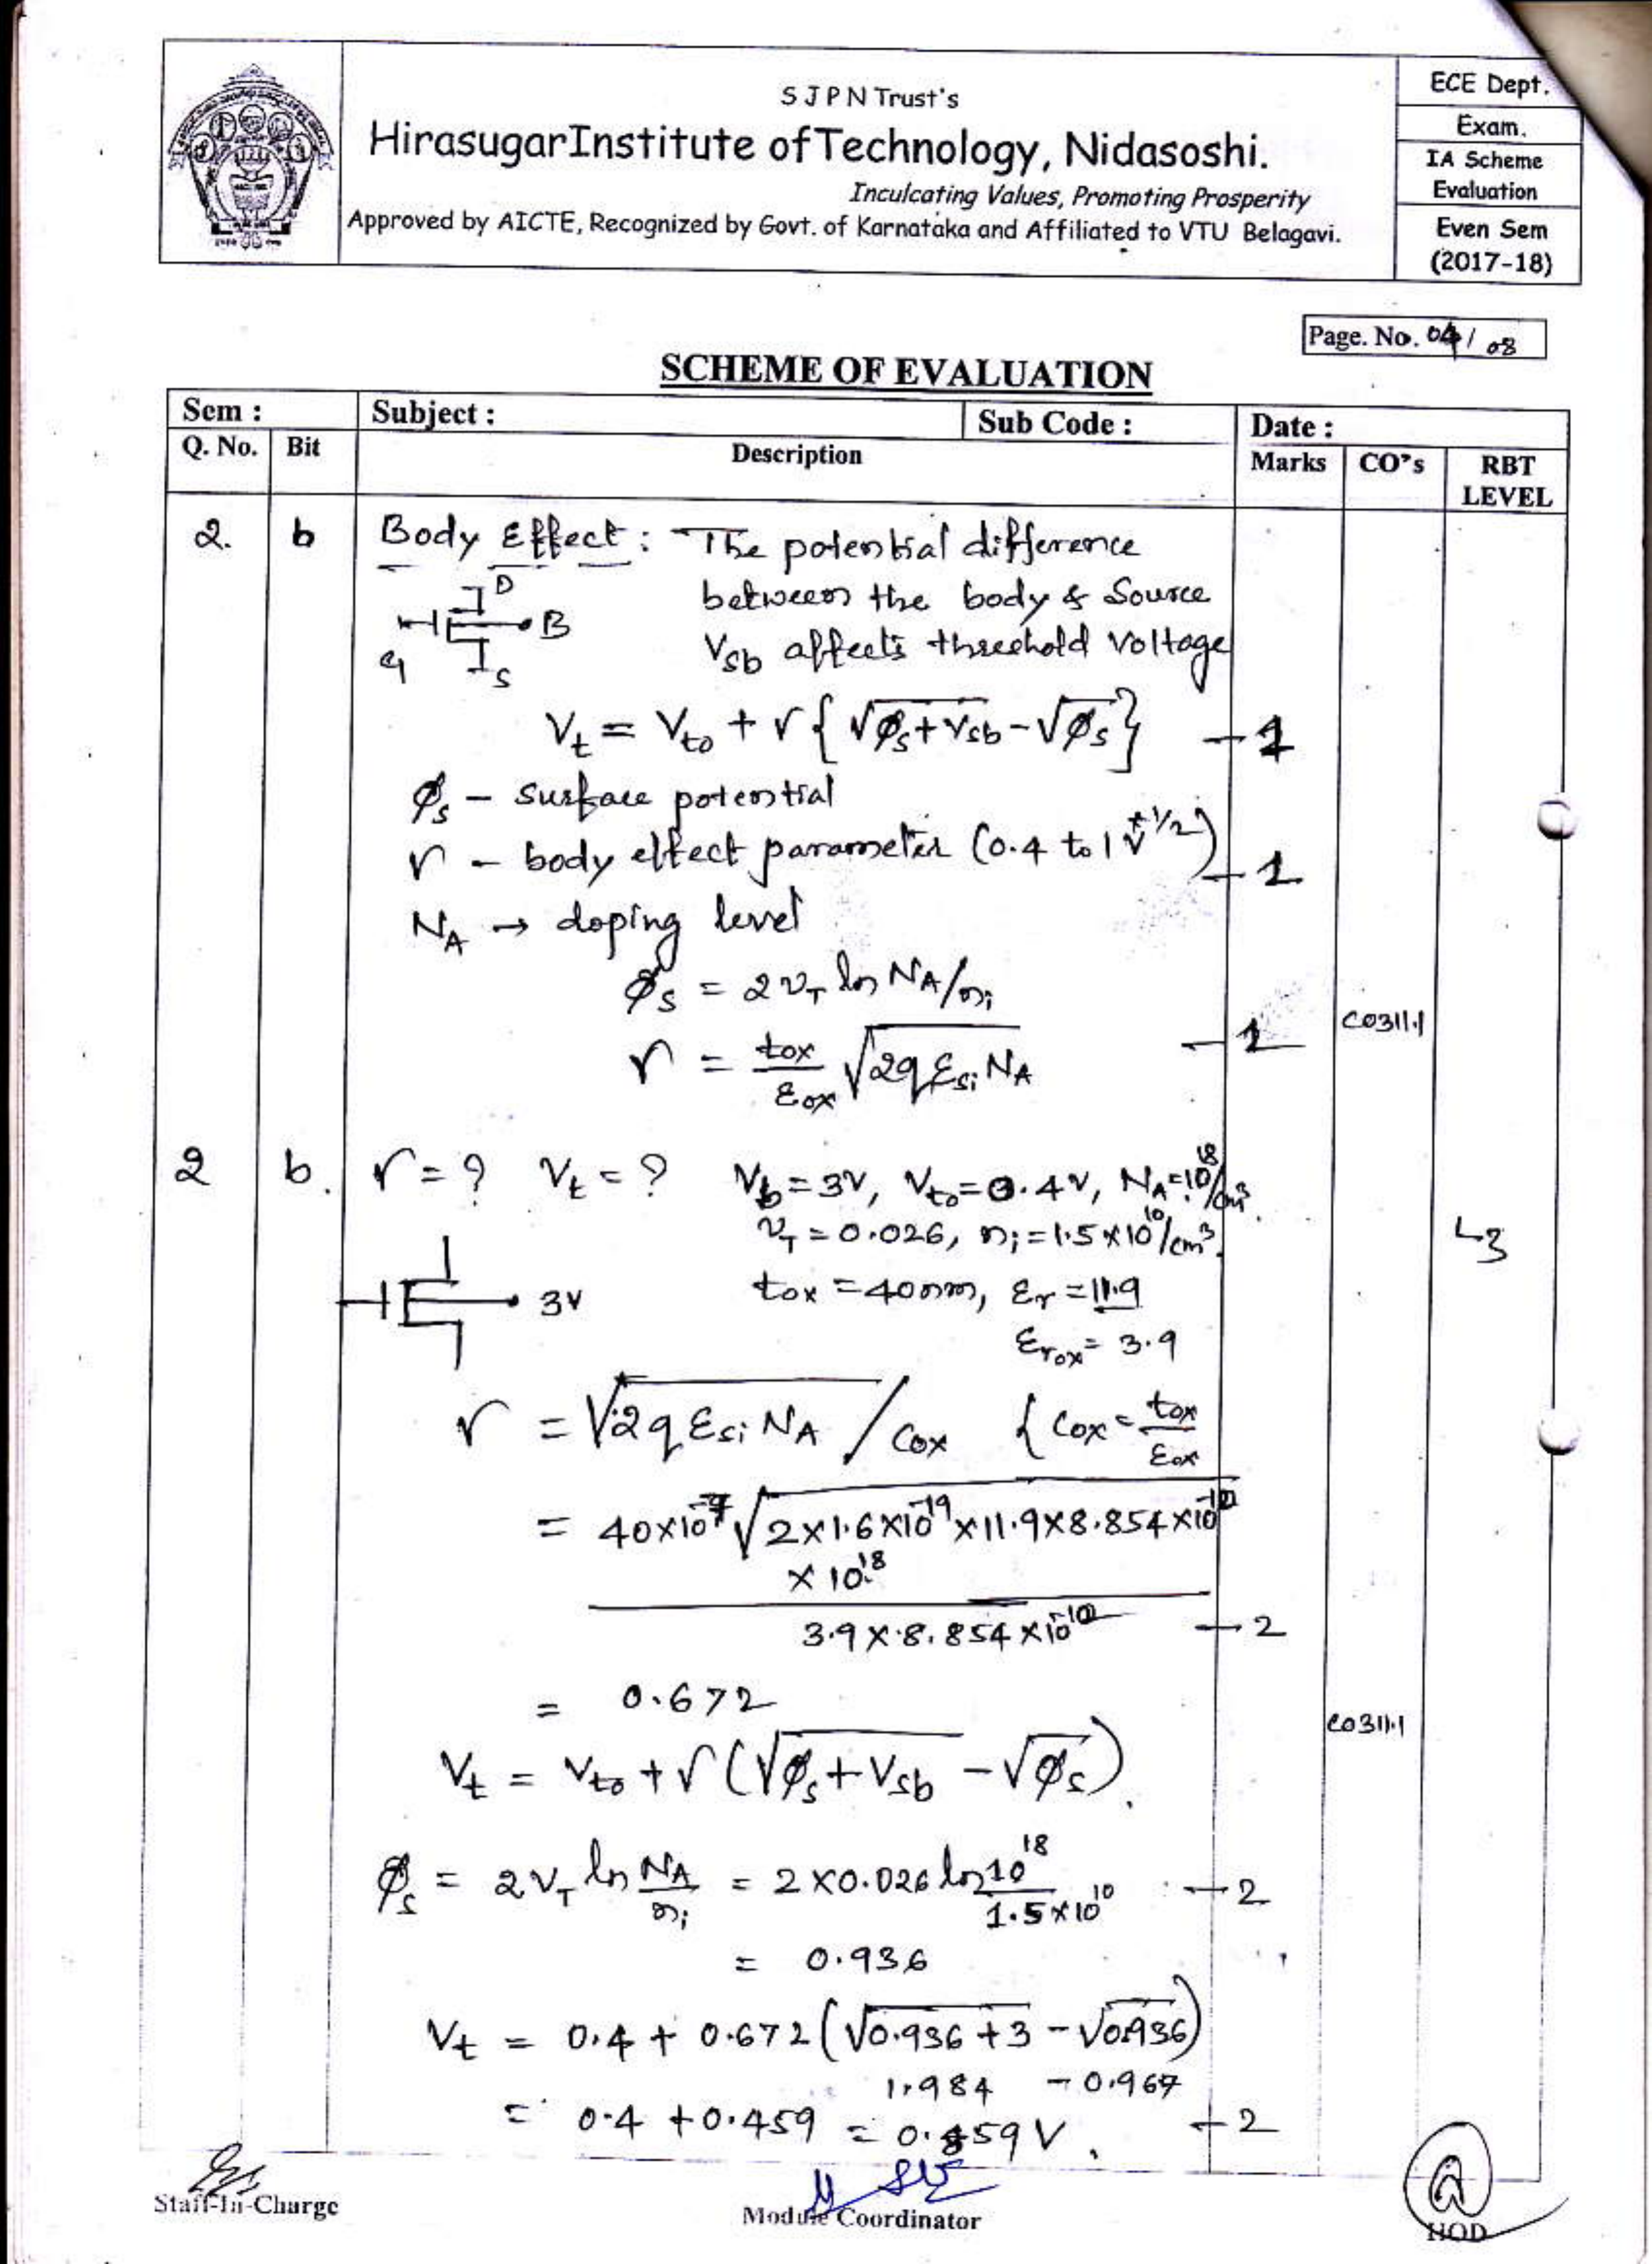 S J P N Trust's
HirasugarInstitute of Technology, Nidasoshi.
Inculcating Values, Promoting Prosperity
Approved by AICTE, Recognized by Govt. of Karnataka and Affiliated to VTU Belagavi.
ECE Dept.
Exam.
IA Scheme
Evaluation
Even Sem
(2017-18)
Page. No. 04 / 08
SCHEME OF EVALUATION
Sem : Subject : Sub Code : Date :
Q. No. Bit Description Marks CO's RBT LEVEL
2. b Body Effect : The potential difference
between the body & Source
Vsb affects threshold voltage
D
G B
S
Vt = Vto + γ { √φs+Vsb - √φs } - 1
φs - surface potential
γ - body effect parameter (0.4 to 1 V^1/2) - 1
NA → doping level
φs = 2vT ln NA/ni
γ = tox/εox √2qεsi NA - 1 CO311.1
2 b. γ = ? Vt = ? Vb = 3V, Vto = 0.4V, NA = 10^18/cm3.
vT = 0.026, ni = 1.5×10^10/cm3.
3V tox = 40nm, εr = 11.9
εrox = 3.9
L3
γ = √2qεsi NA / Cox { Cox = tox/εox
= 40×10^-7 √2×1.6×10^-19×11.9×8.854×10
× 10^18
3.9×8.854×10 - 2
= 0.672
CO311.1
Vt = Vto + γ (√φs+Vsb - √φs).
φs = 2vT ln NA/ni = 2×0.026 ln 10^18/1.5×10^10 - 2
= 0.936
Vt = 0.4 + 0.672 (√0.936+3 - √0.936)
1.984 - 0.967
= 0.4 + 0.459 = 0.859 V. - 2
Staff-In-Charge
Module Coordinator
HOD